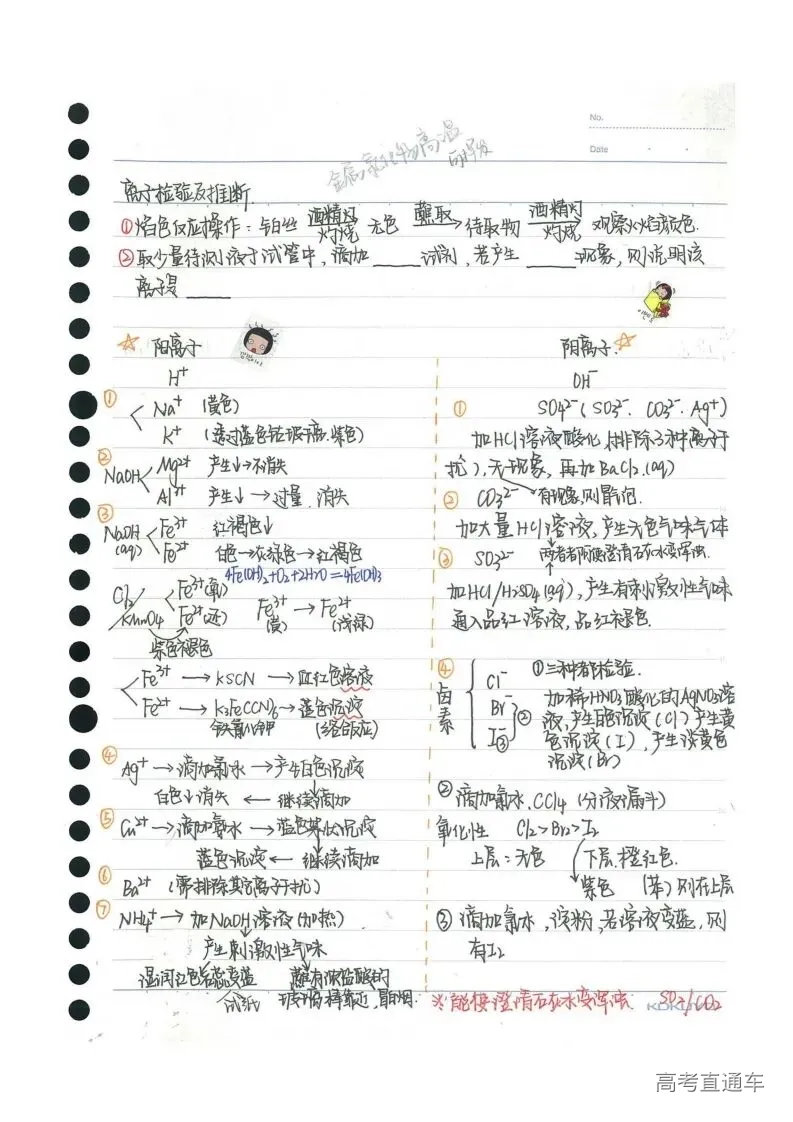 No.
Date
金属氯化物高温
离子检验及推断.
①焰色反应操作：铂丝 酒精灯灼烧→ 无色 蘸取→ 待取物 酒精灯灼烧→ 观察火焰颜色.
②取少量待测液于试管中，滴加____试剂，若产生____现象，则说明该
离子是____
☆ 阳离子
H⁺
① Na⁺ (黄色)
K⁺ (透过蓝色钴玻璃，紫色)
② NaOH Mg²⁺ 产生↓→不消失
Al³⁺ 产生↓→过量，消失
③ NaOH (aq) Fe³⁺ 红褐色↓
Fe²⁺ 白色→灰绿色→红褐色
4Fe(OH)₂+O₂+2H₂O=4Fe(OH)₃
Cl₂/KMnO₄ Fe³⁺(氧) Fe³⁺(黄) → Fe²⁺(浅绿)
Fe²⁺(还)
紫色褪色
Fe³⁺ → KSCN → 血红色溶液
Fe²⁺ → K₃Fe(CN)₆ → 蓝色沉淀
铁氰化钾 (络合反应)
④ Ag⁺→滴加氨水→产生白色沉淀
白色↓消失 ← 继续滴加
⑤ Cu²⁺→滴加氨水→蓝色絮状沉淀
蓝色沉淀← 继续滴加
⑥ Ba²⁺ (需排除其它离子干扰)
⑦ NH₄⁺→加NaOH溶液(加热)
产生刺激性气味
湿润红色石蕊变蓝
试纸
蘸有浓盐酸的
玻璃棒靠近，冒白烟.
阴离子.☆
OH⁻
① SO₄²⁻(SO₃²⁻. CO₃²⁻. Ag⁺)
加HCl溶液酸化，(排除3种离子干
扰)，无现象，再加BaCl₂(aq)
② CO₃²⁻ 有现象，则
加大量HCl溶液，产生无色气味气体
③ SO₃²⁻ 两者都可使澄清石灰水变浑浊.
加HCl/H₂SO₄(aq)，产生有刺激性气味
通入品红溶液，品红褪色.
④ 卤素 Cl⁻ Br⁻ I⁻ ② ③
①三种都检验.
加稀HNO₃酸化的AgNO₃溶
液，产生白色沉淀(Cl) 产生黄
色沉淀(I)，产生淡黄色
沉淀(Br)
②滴加氯水，CCl₄ (分液漏斗)
氧化性 Cl₂>Br₂>I₂
上层：无色 下层，橙红色.
紫色 (苯)则在上层
③滴加氯水，淀粉，若溶液变蓝，则
有I₂
※能使澄清石灰水变浑浊 SO₂/CO₂
KOKUYO
高考直通车